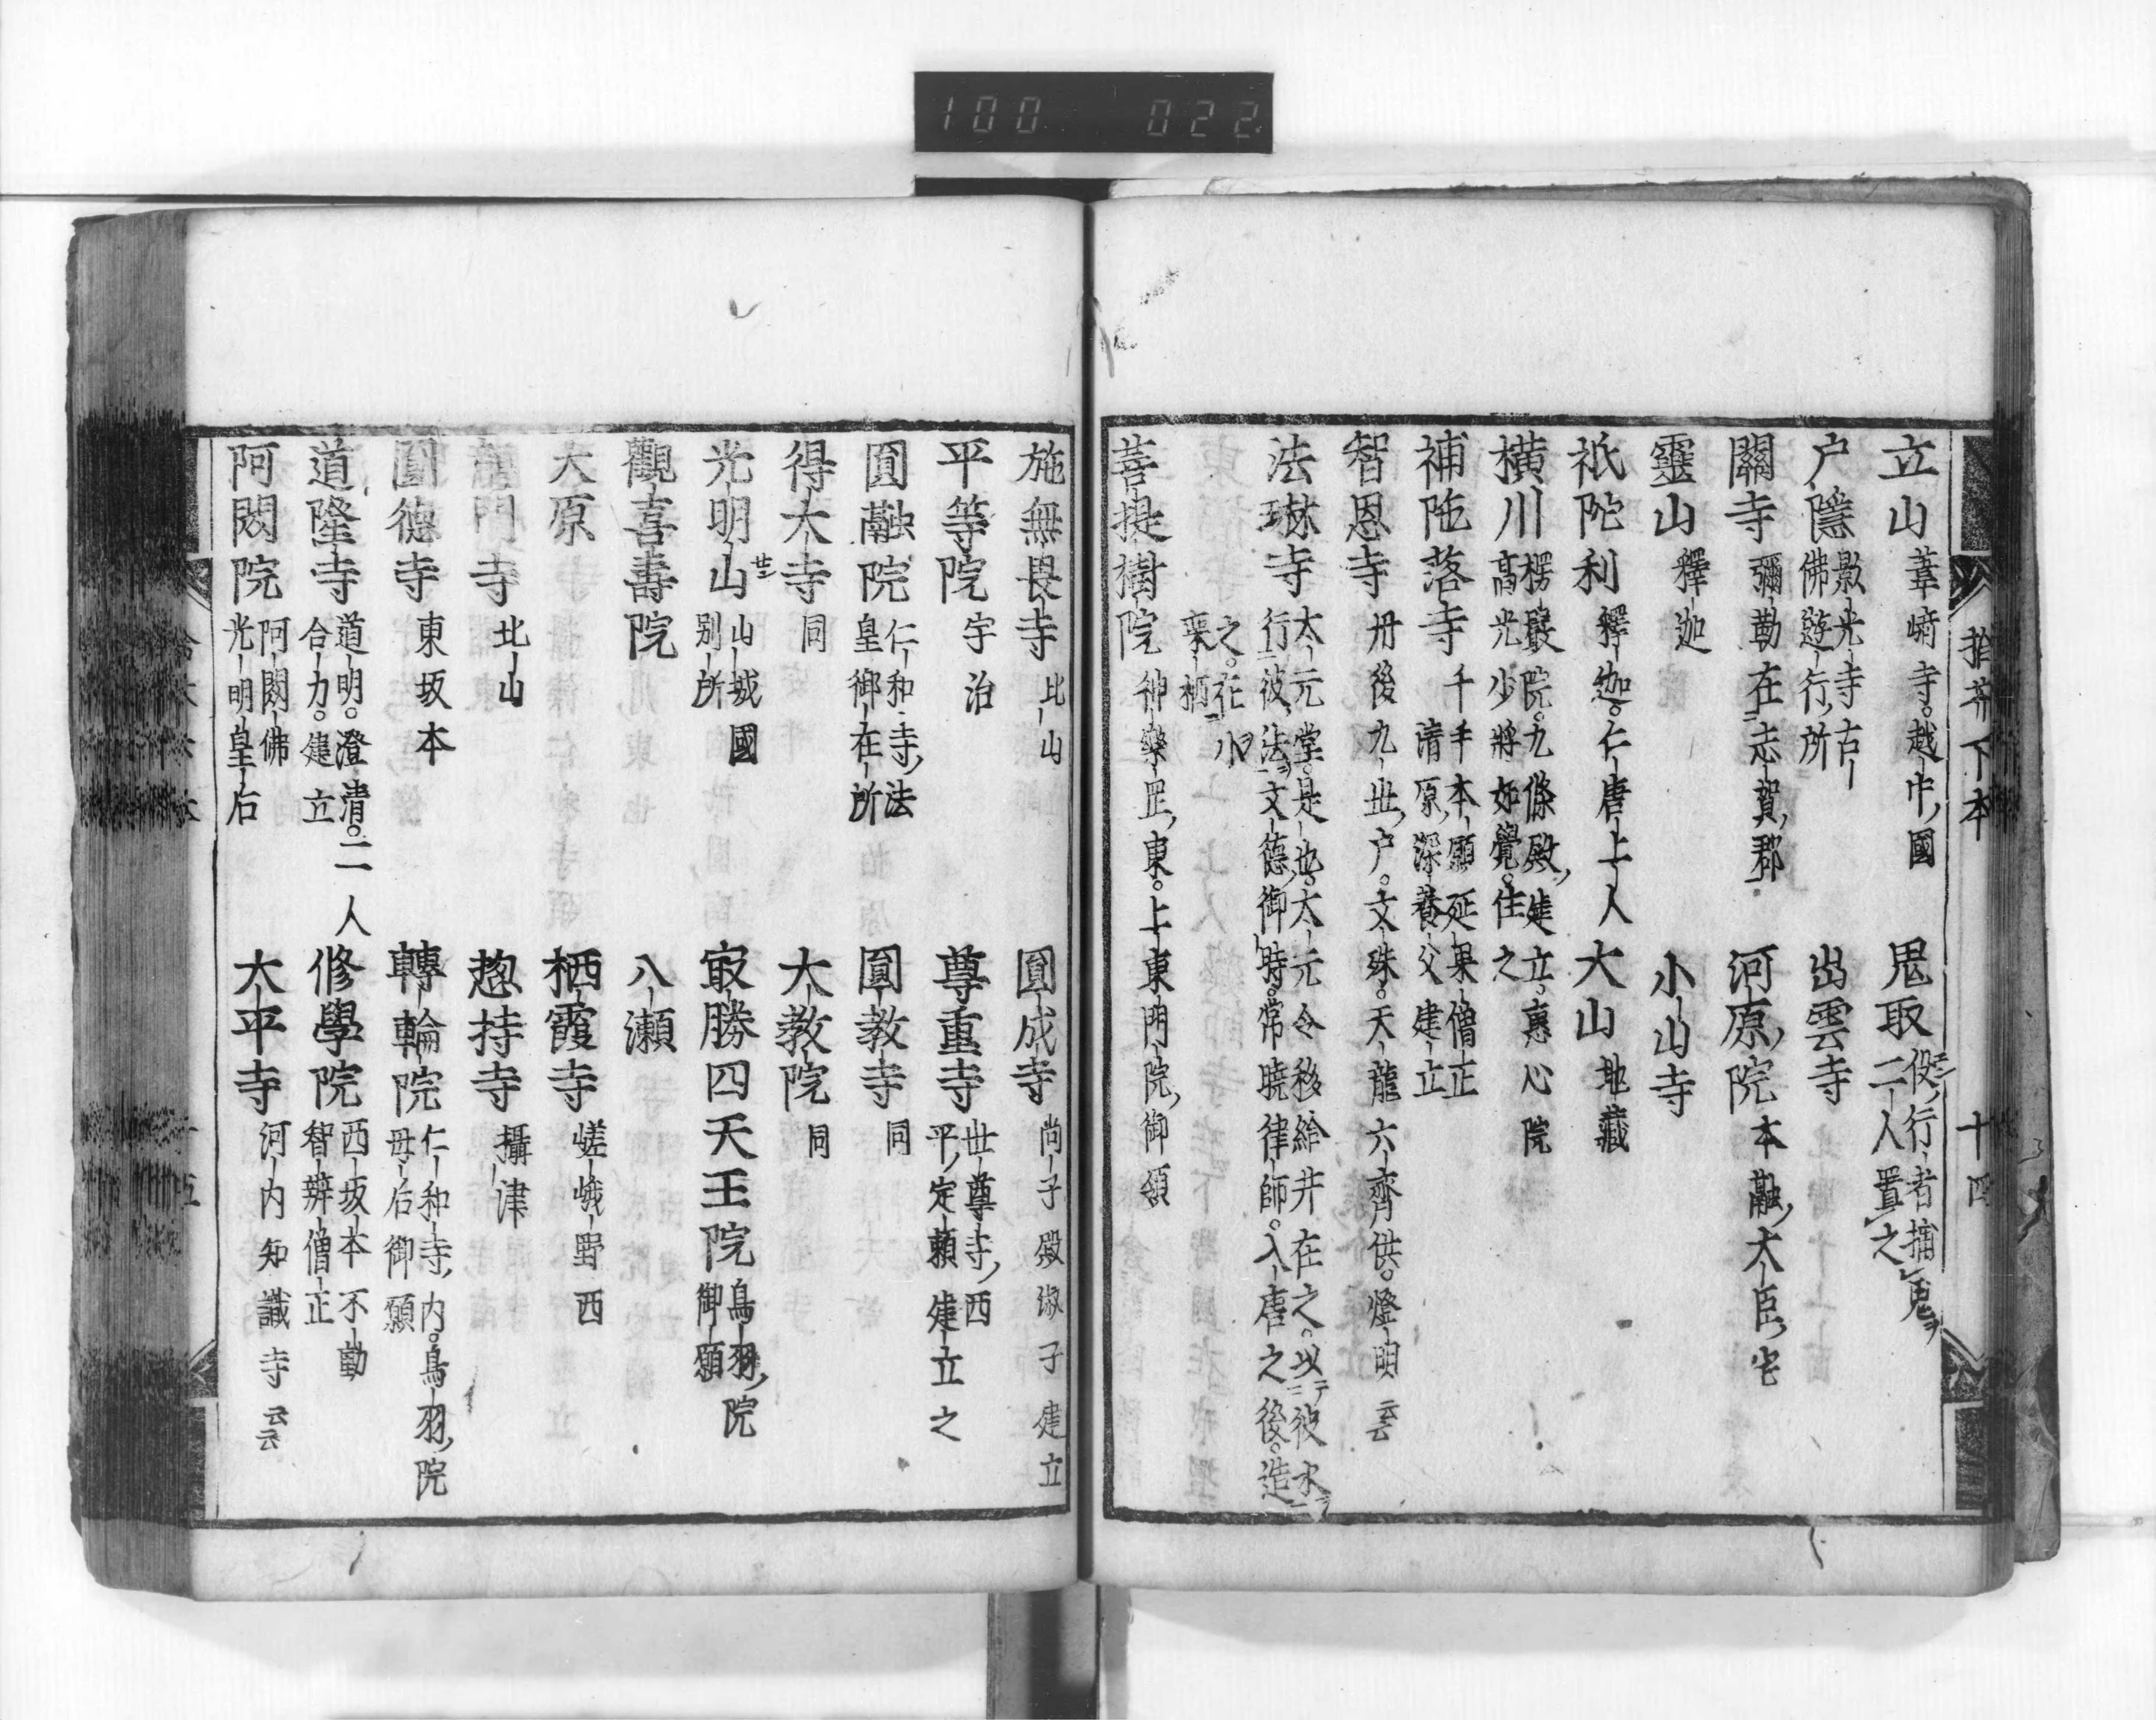 100 022
拾芥下本 十四
立山 葦峅寺越中國 鬼取 役行者捕鬼二人置之
戸隱 影光寺古佛遊行所 出雲寺
關寺 彌勒在志賀郡 河原院 本融大臣宅
靈山 釋迦 小山寺
祇陀利 釋迦仁唐上人 大山 地藏
横川 楞嚴院九條殿建立惠心院高光少將如覺住之
補陁落寺 千手本願延杲僧正清原深養父建立
智恩寺 丹後九世戸文殊天龍六齊供燈明云云
法琳寺 太元堂是也太元令移給井在之以彼水行彼法文德御時常曉律師入唐之後造
之在小栗栖
菩提樹院 神樂罡東上東門院御領
施無畏寺 北山 圓成寺 尚子殿淑子建立
平等院 宇治 尊重寺 世尊寺西平定頼建立之
圓融院 仁和寺法皇御在所 圓教寺 同
得大寺 同 大教院 同
光明山 山城國別所 寂勝四天王院 鳥羽院御願
觀喜壽院 八瀬
大原 栖霞寺 嵯峨野西
龍門寺 北山 摠持寺 攝津
圓德寺 東坂本 轉輪院 仁和寺内鳥羽院母后御願
道隆寺 道明澄清二人合力建立 修學院 西坂本不動智辨僧正
阿閦院 阿閦佛光明皇后 大平寺 河内知識寺云云